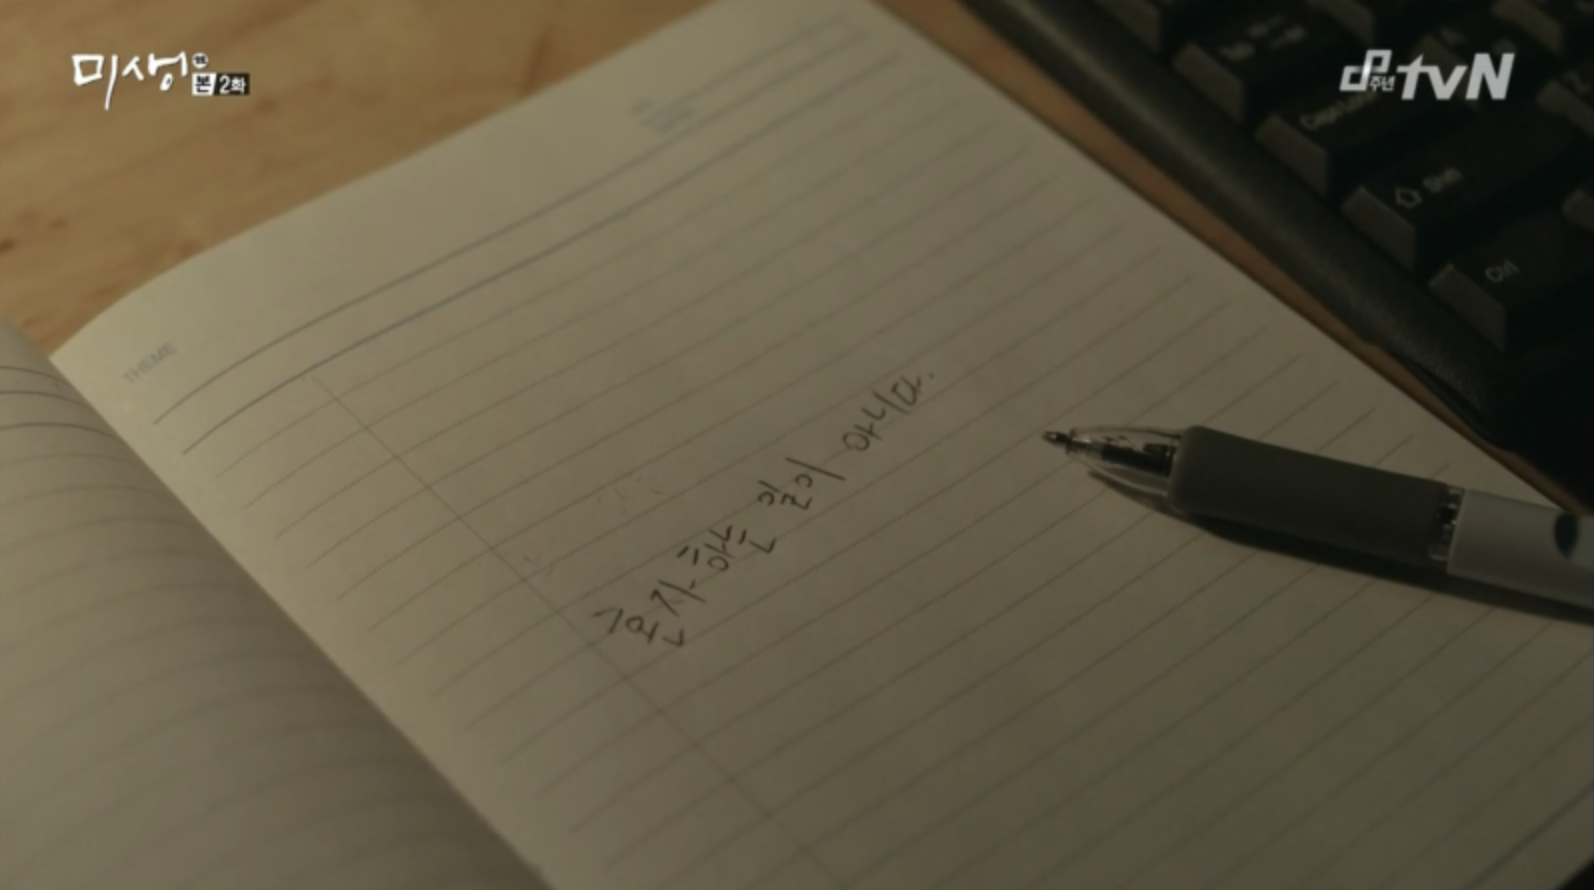 미생의
본 2화
8주년 tvN
THEME
혼자 하는 일이 아니다.
Caps Lock
Shift
Ctrl